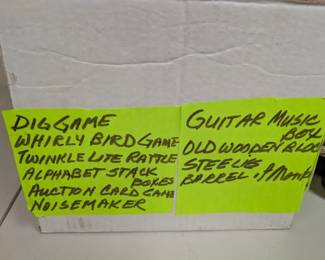 DIG GAME
WHIRLY BIRD GAME
TWINKLE LITE RATTLE
ALPHABET STACK
BOXES
AUCTION CARD GAME
NOISEMAKER
GUITAR MUSIC
BOX
OLD WOODEN BLOC
STEELIE
BARREL of Monk